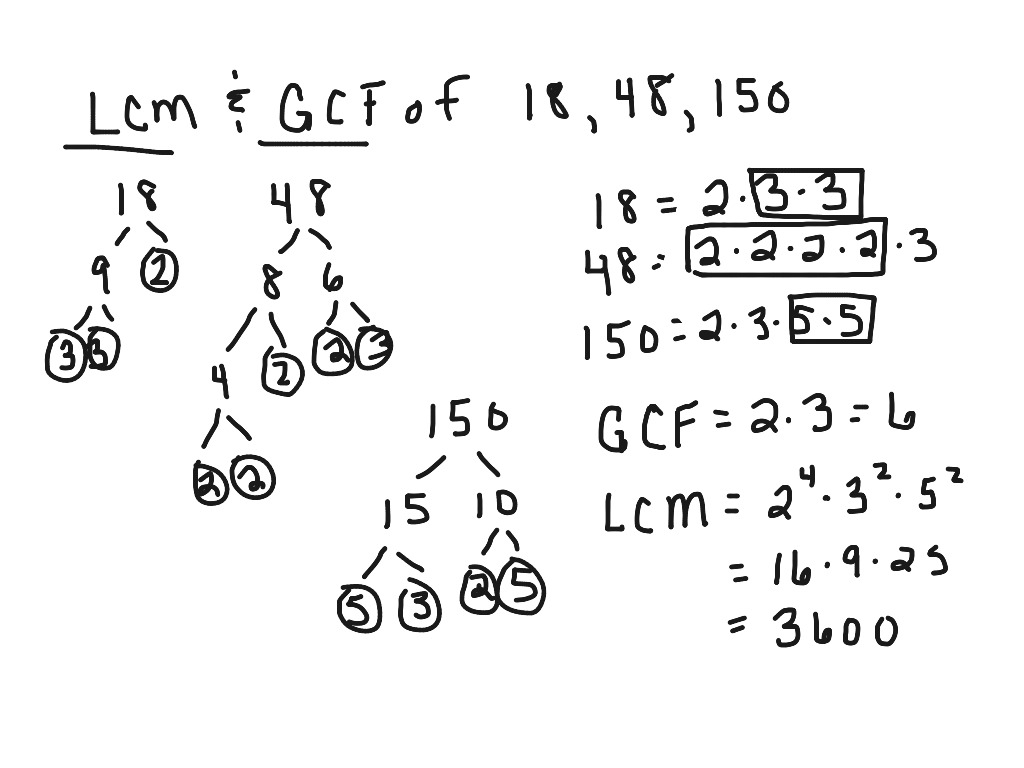 LCM & GCF of 18, 48, 150
18
9 2
3 3
48
8 6
4 2 2 3
2 2
150
15 10
5 3 2 5
18 = 2 · 3 · 3
48 = 2 · 2 · 2 · 2 · 3
150 = 2 · 3 · 5 · 5
GCF = 2 · 3 = 6
LCM = 2⁴ · 3² · 5²
= 16 · 9 · 25
= 3600